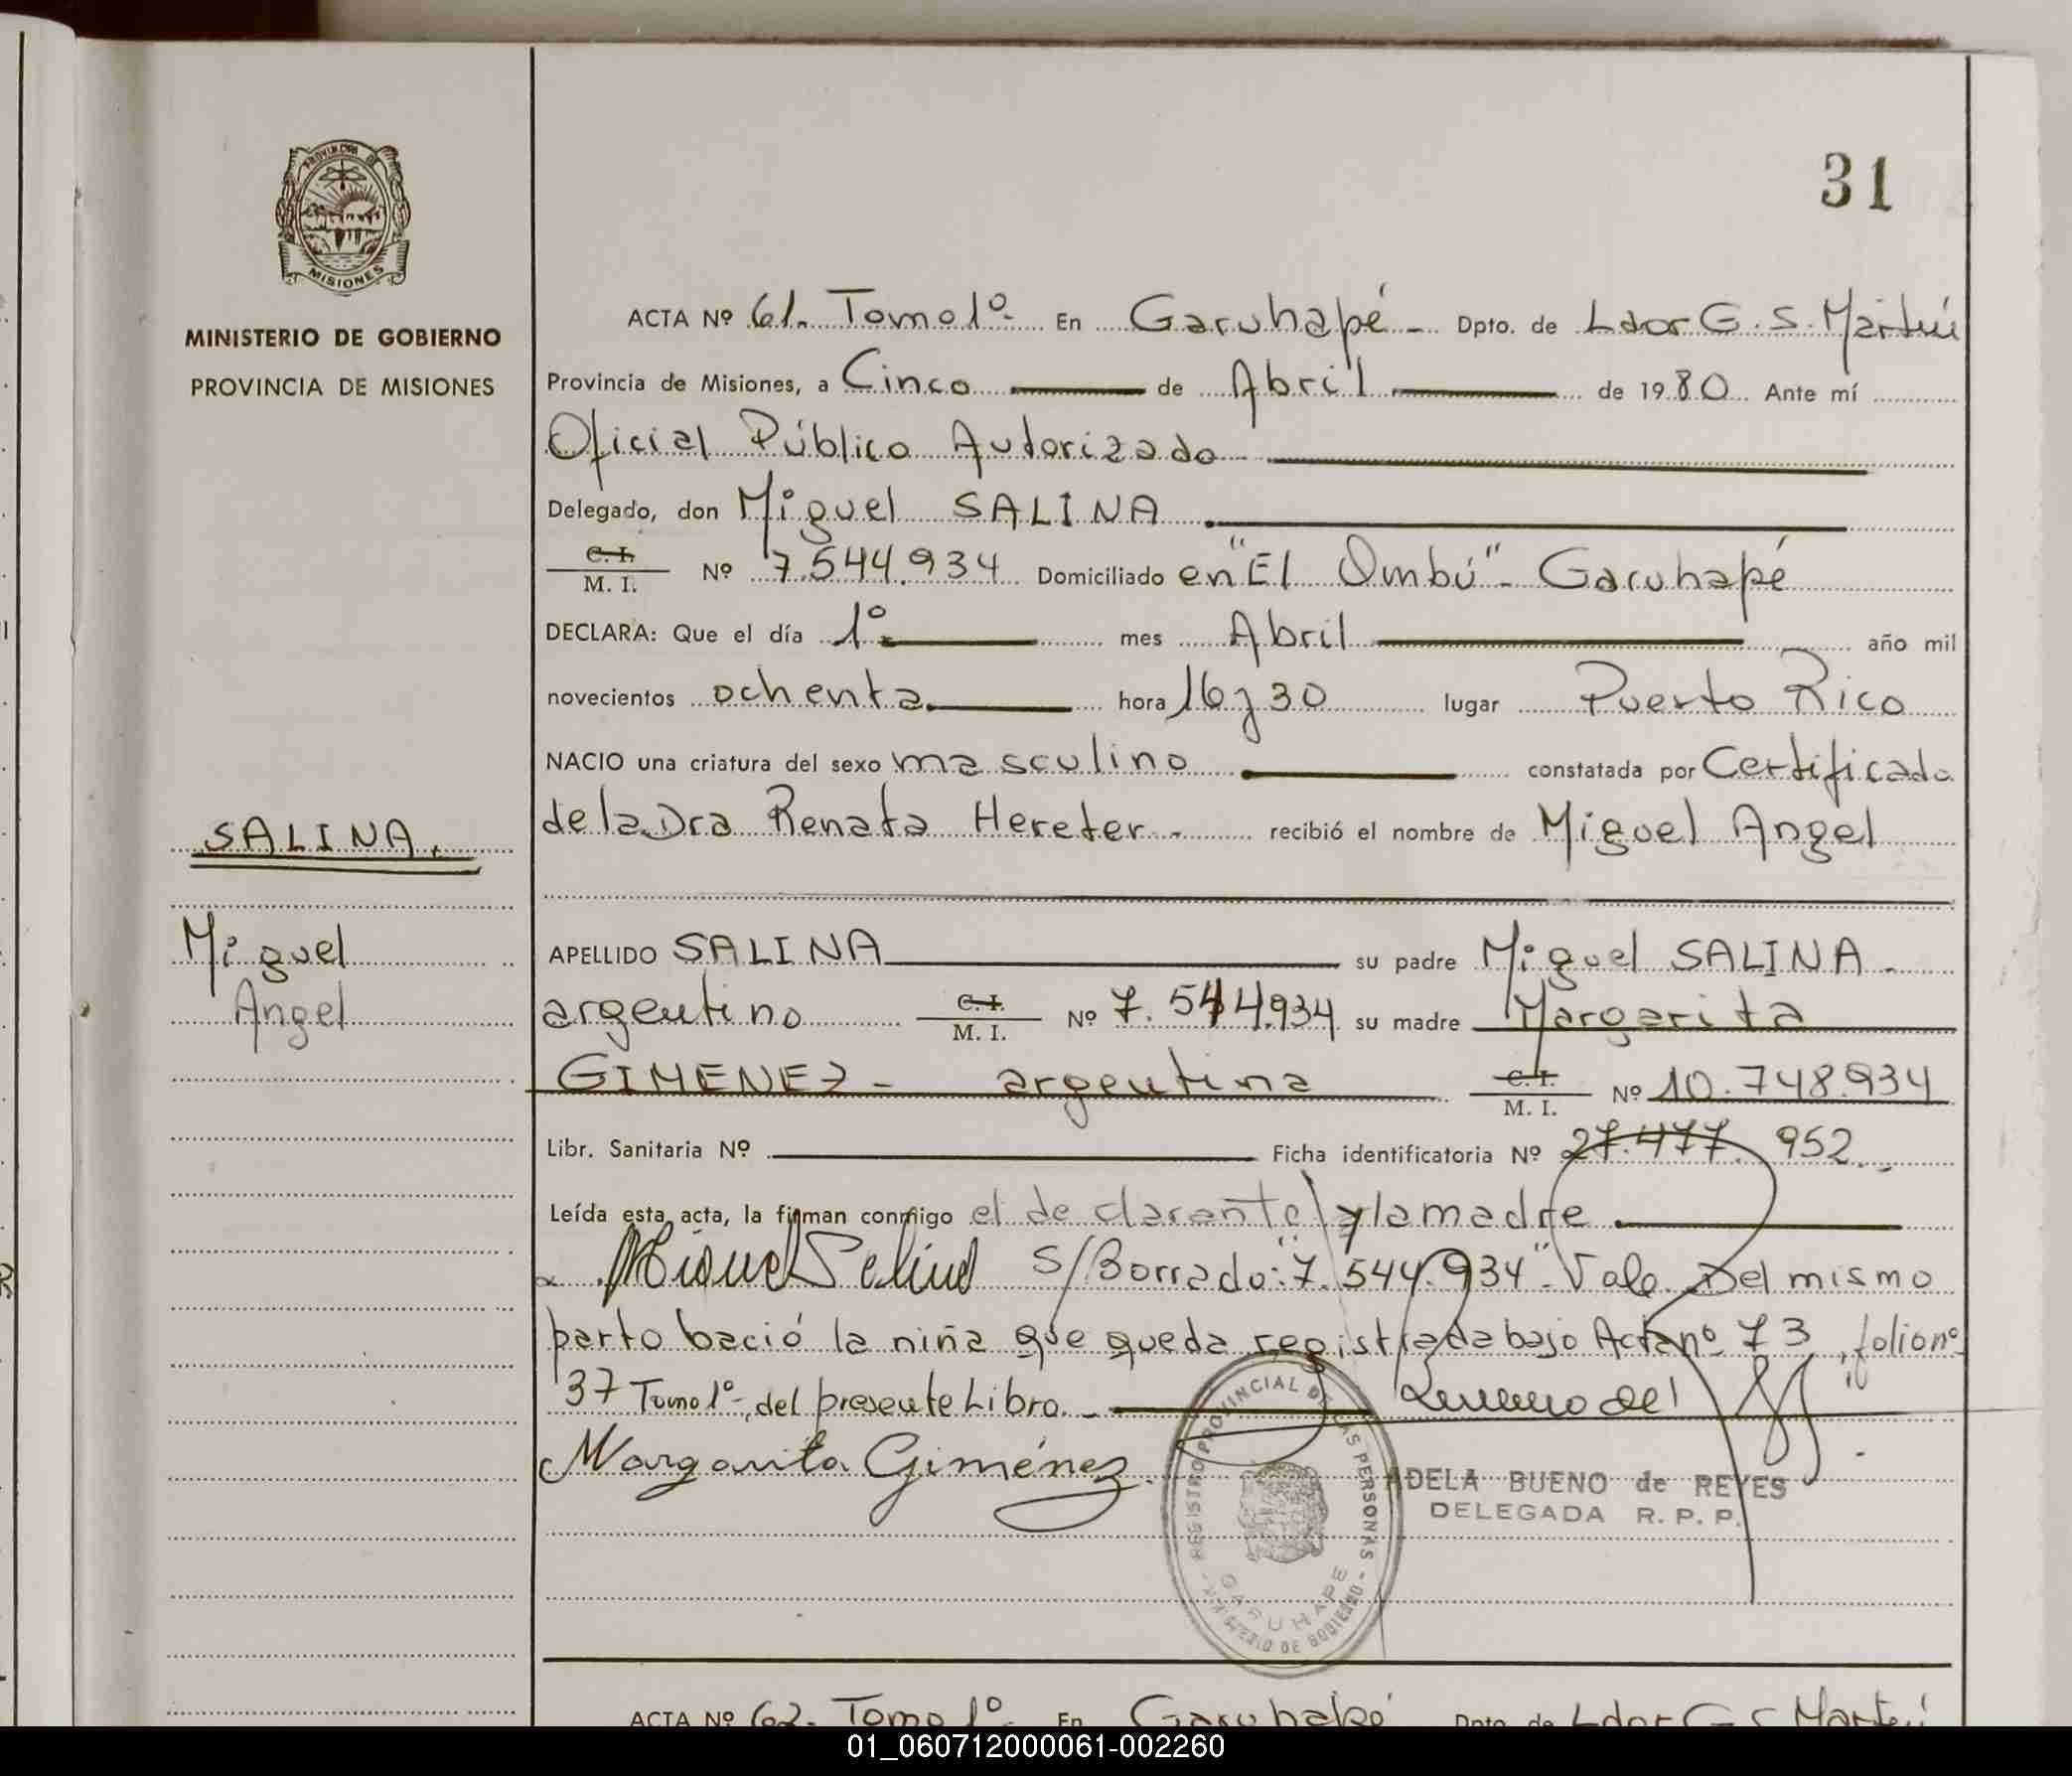 PROVINCIA DE
MISIONES
MINISTERIO DE GOBIERNO
PROVINCIA DE MISIONES
SALINA.
Miguel
Angel
31
ACTA Nº 61. Tomo 1º- En Garuhapé - Dpto. de Ldor G. S. Martín
Provincia de Misiones, a Cinco de Abril de 1980 Ante mí
Oficial Público Autorizado
Delegado, don Miguel SALINA
C. I.
M. I. Nº 7.544.934 Domiciliado en "El Ombú" - Garuhapé
DECLARA: Que el día 1º mes Abril año mil
novecientos ochenta hora 16 y 30 lugar Puerto Rico
NACIO una criatura del sexo masculino constatada por Certificado
de la Dra Renata Hereter - recibió el nombre de Miguel Angel
APELLIDO SALINA su padre Miguel SALINA -
argentino C. I.
M. I. Nº 7.544.934 su madre Margarita
GIMENEZ - argentina C. I.
M. I. Nº 10.748.934
Libr. Sanitaria Nº Ficha identificatoria Nº 27.477.952
Leída esta acta, la firman conmigo el declarante y la madre
Miguel Salina S/Borrado: "7.544.934" - Vale Del mismo
parto bació la niña que queda registrada bajo Acta nº 73, folio nº
37 Tomo 1º-, del presente Libro. -
Margarita Giménez.
REGISTRO PROVINCIAL DE LAS PERSONAS
GARUHAPE
MINISTERIO DE GOBIERNO
ADELA BUENO de REYES
DELEGADA R. P. P.
ACTA Nº 62. Tomo 1º- En Garuhapé Dpto. de Ldor G. S. Martín
01_060712000061-002260